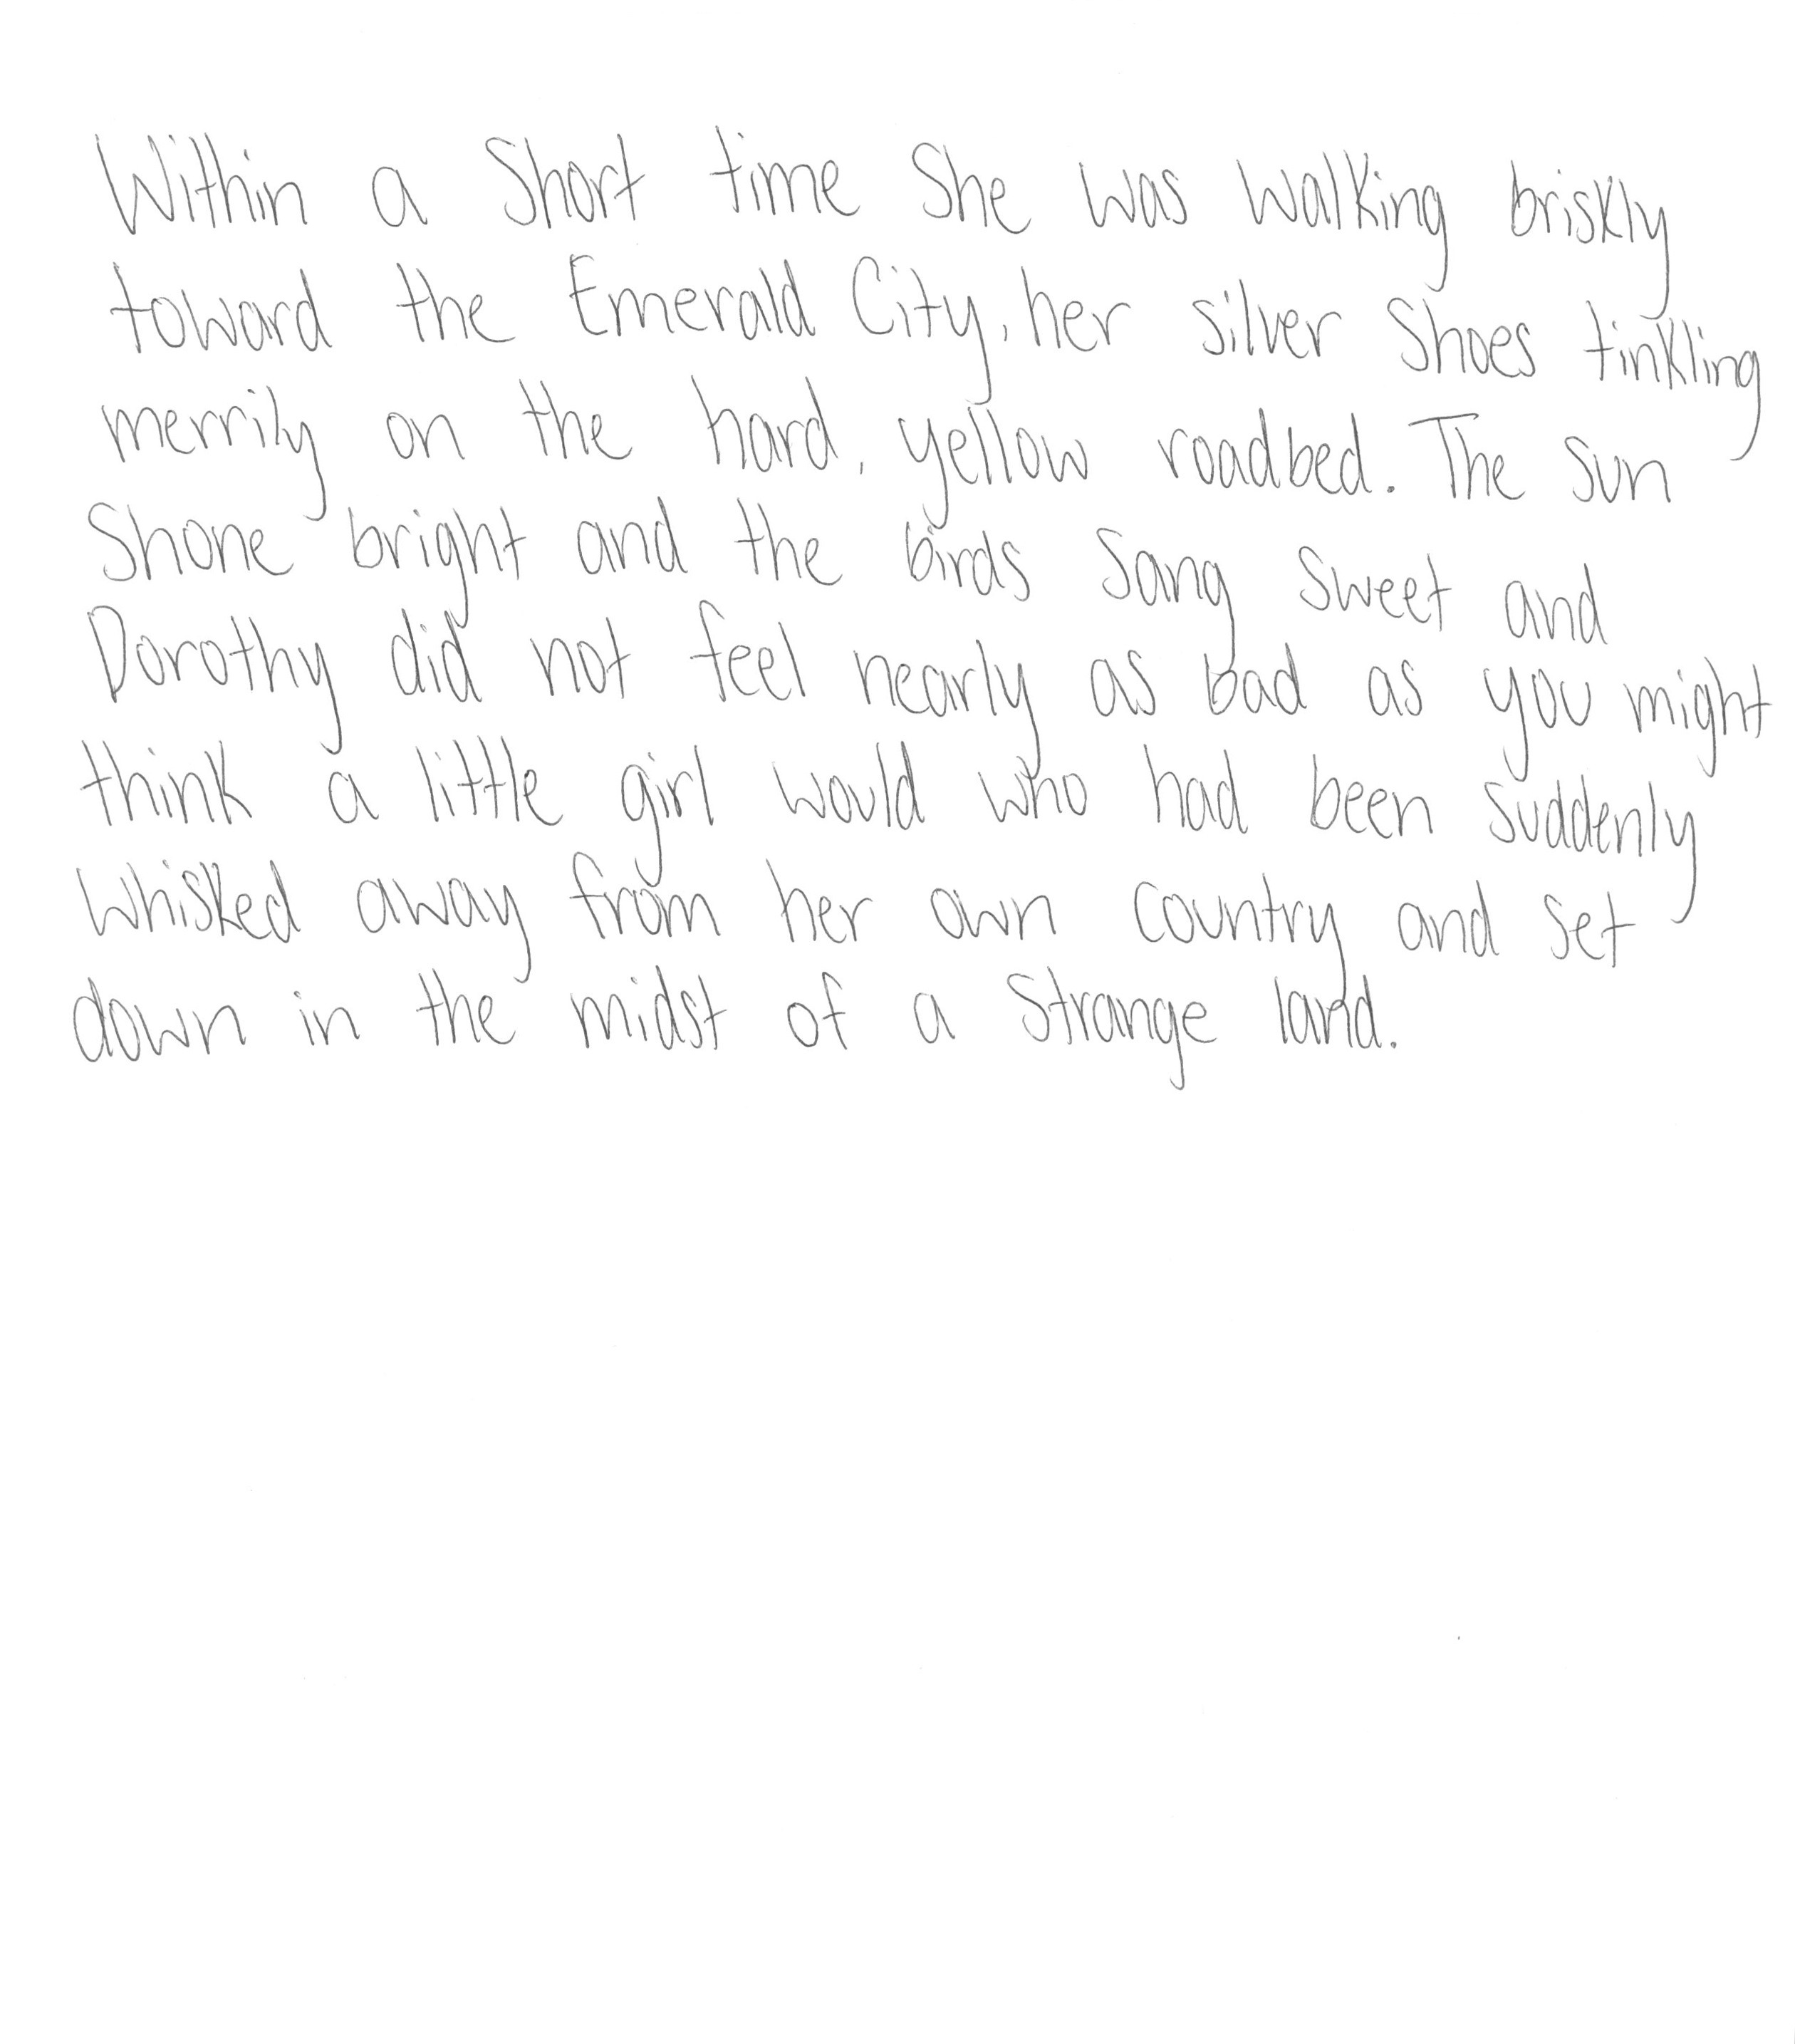 Within a Short time She was walking briskly
toward the Emerald City, her silver Shoes tinkling
merrily on the hard, yellow roadbed. The sun
Shone bright and the birds sang sweet and
Dorothy did not feel nearly as bad as you might
think a little girl would who had been suddenly
whisked away from her own country and set
down in the midst of a strange land.